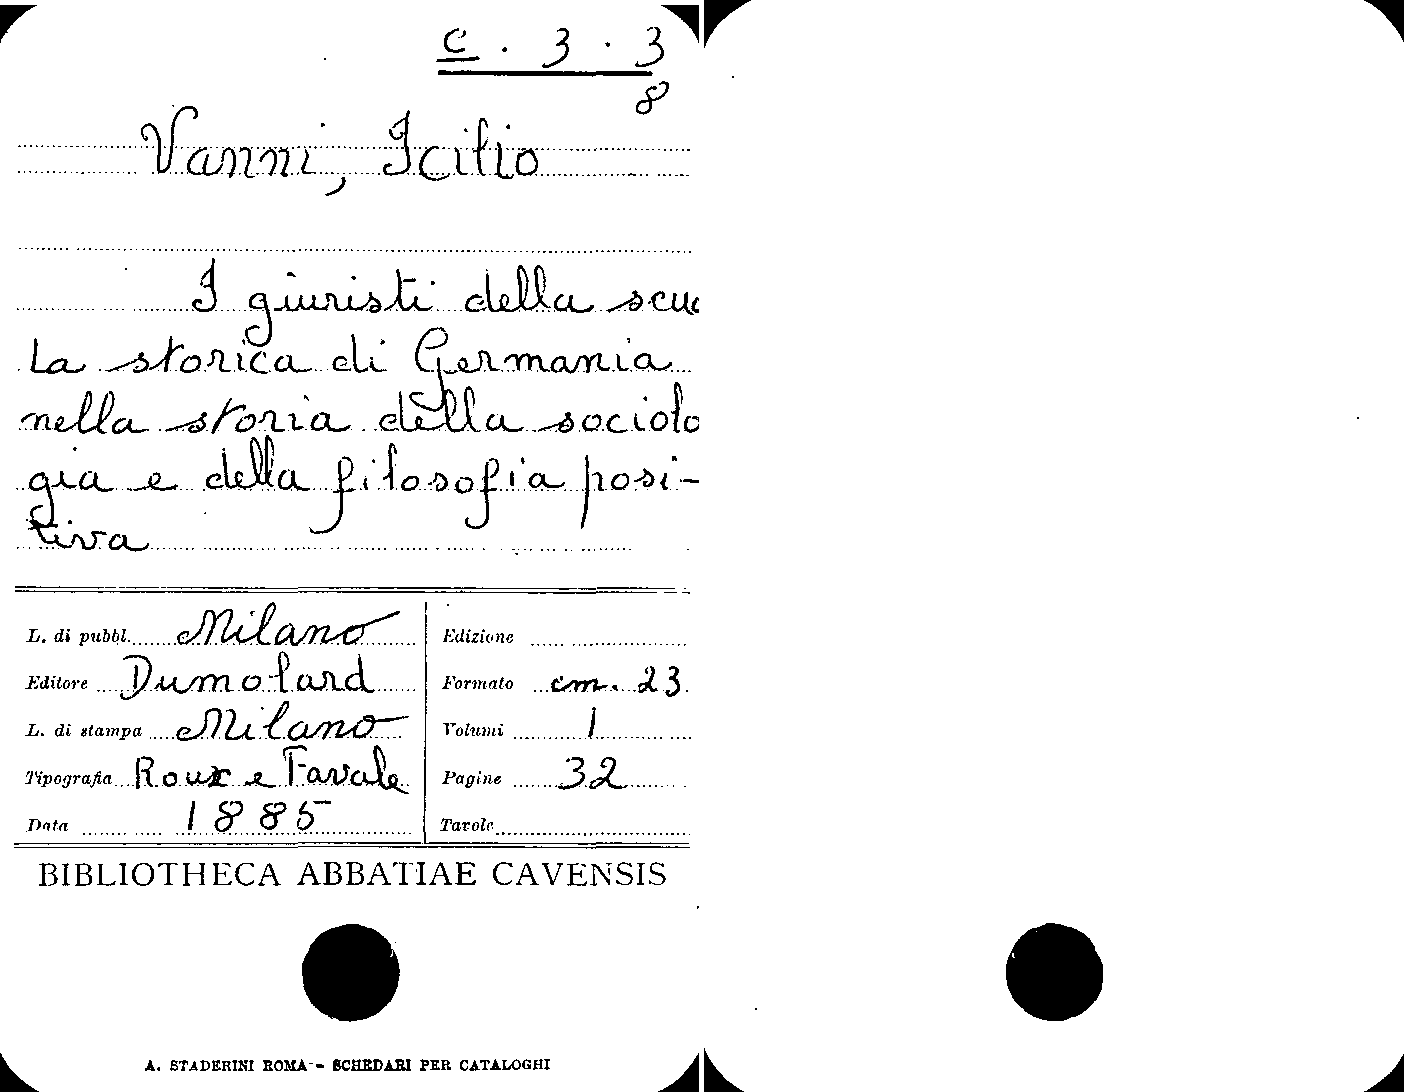 C . 3 . 3
8
Vanni, Icilio
I giuristi della scuo
la storica di Germania
nella storia della sociolo
gia e della filosofia posi-
tiva
L. di pubbl. Milano
Editore Dumolard
L. di stampa Milano
Tipografia Roux e Favale
Data 1885
Edizione
Formato cm. 23
Volumi 1
Pagine 32
Tavole
BIBLIOTHECA ABBATIAE CAVENSIS
A. STADERINI ROMA - SCHEDARI PER CATALOGHI